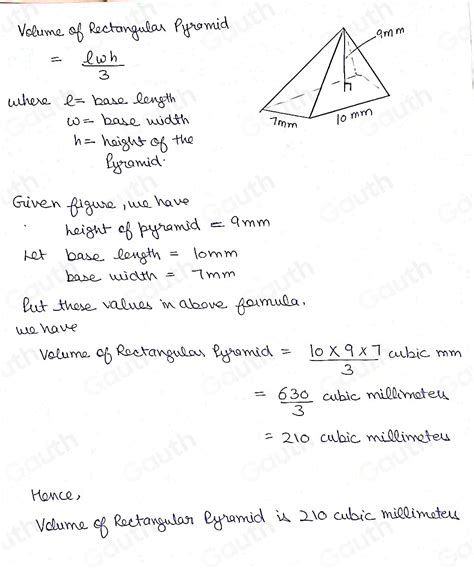 Volume of Rectangular Pyramid
= lwh
3
where l = base length
w = base width
h = height of the
Pyramid.
9mm
h
7mm
10 mm
Given figure, we have
height of pyramid = 9mm
Let base length = 10mm
base width = 7mm
Put these values in above formula.
we have
Volume of Rectangular Pyramid = 10 × 9 × 7 cubic mm
3
= 630 cubic millimeters
3
= 210 cubic millimeters
Hence,
Volume of Rectangular Pyramid is 210 cubic millimeters
Gauth